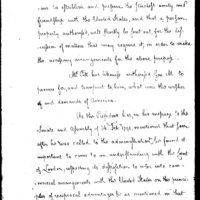 ness to establish and preserve the perfect amity and
friendship with the United States, and that a person
properly authorized, will shortly be sent out, for the dis-
cussion of matters that may require it, in order to make
the necessary arrangements for the above purpose.
Mr Pitt has likewise authorized Gen M to
pursue and transmit to him, what was the
and demands of America.
As the President has in his message to the
Senate and Assembly of 14 Feb 1791, mentioned that soon
after he was called to the administration, he found it
important to come to an understanding with the Court
of London, respecting its disposition to enter into com-
mercial arrangements with the United States on the prin-
ciples of reciprocal advantages to be mentioned in that